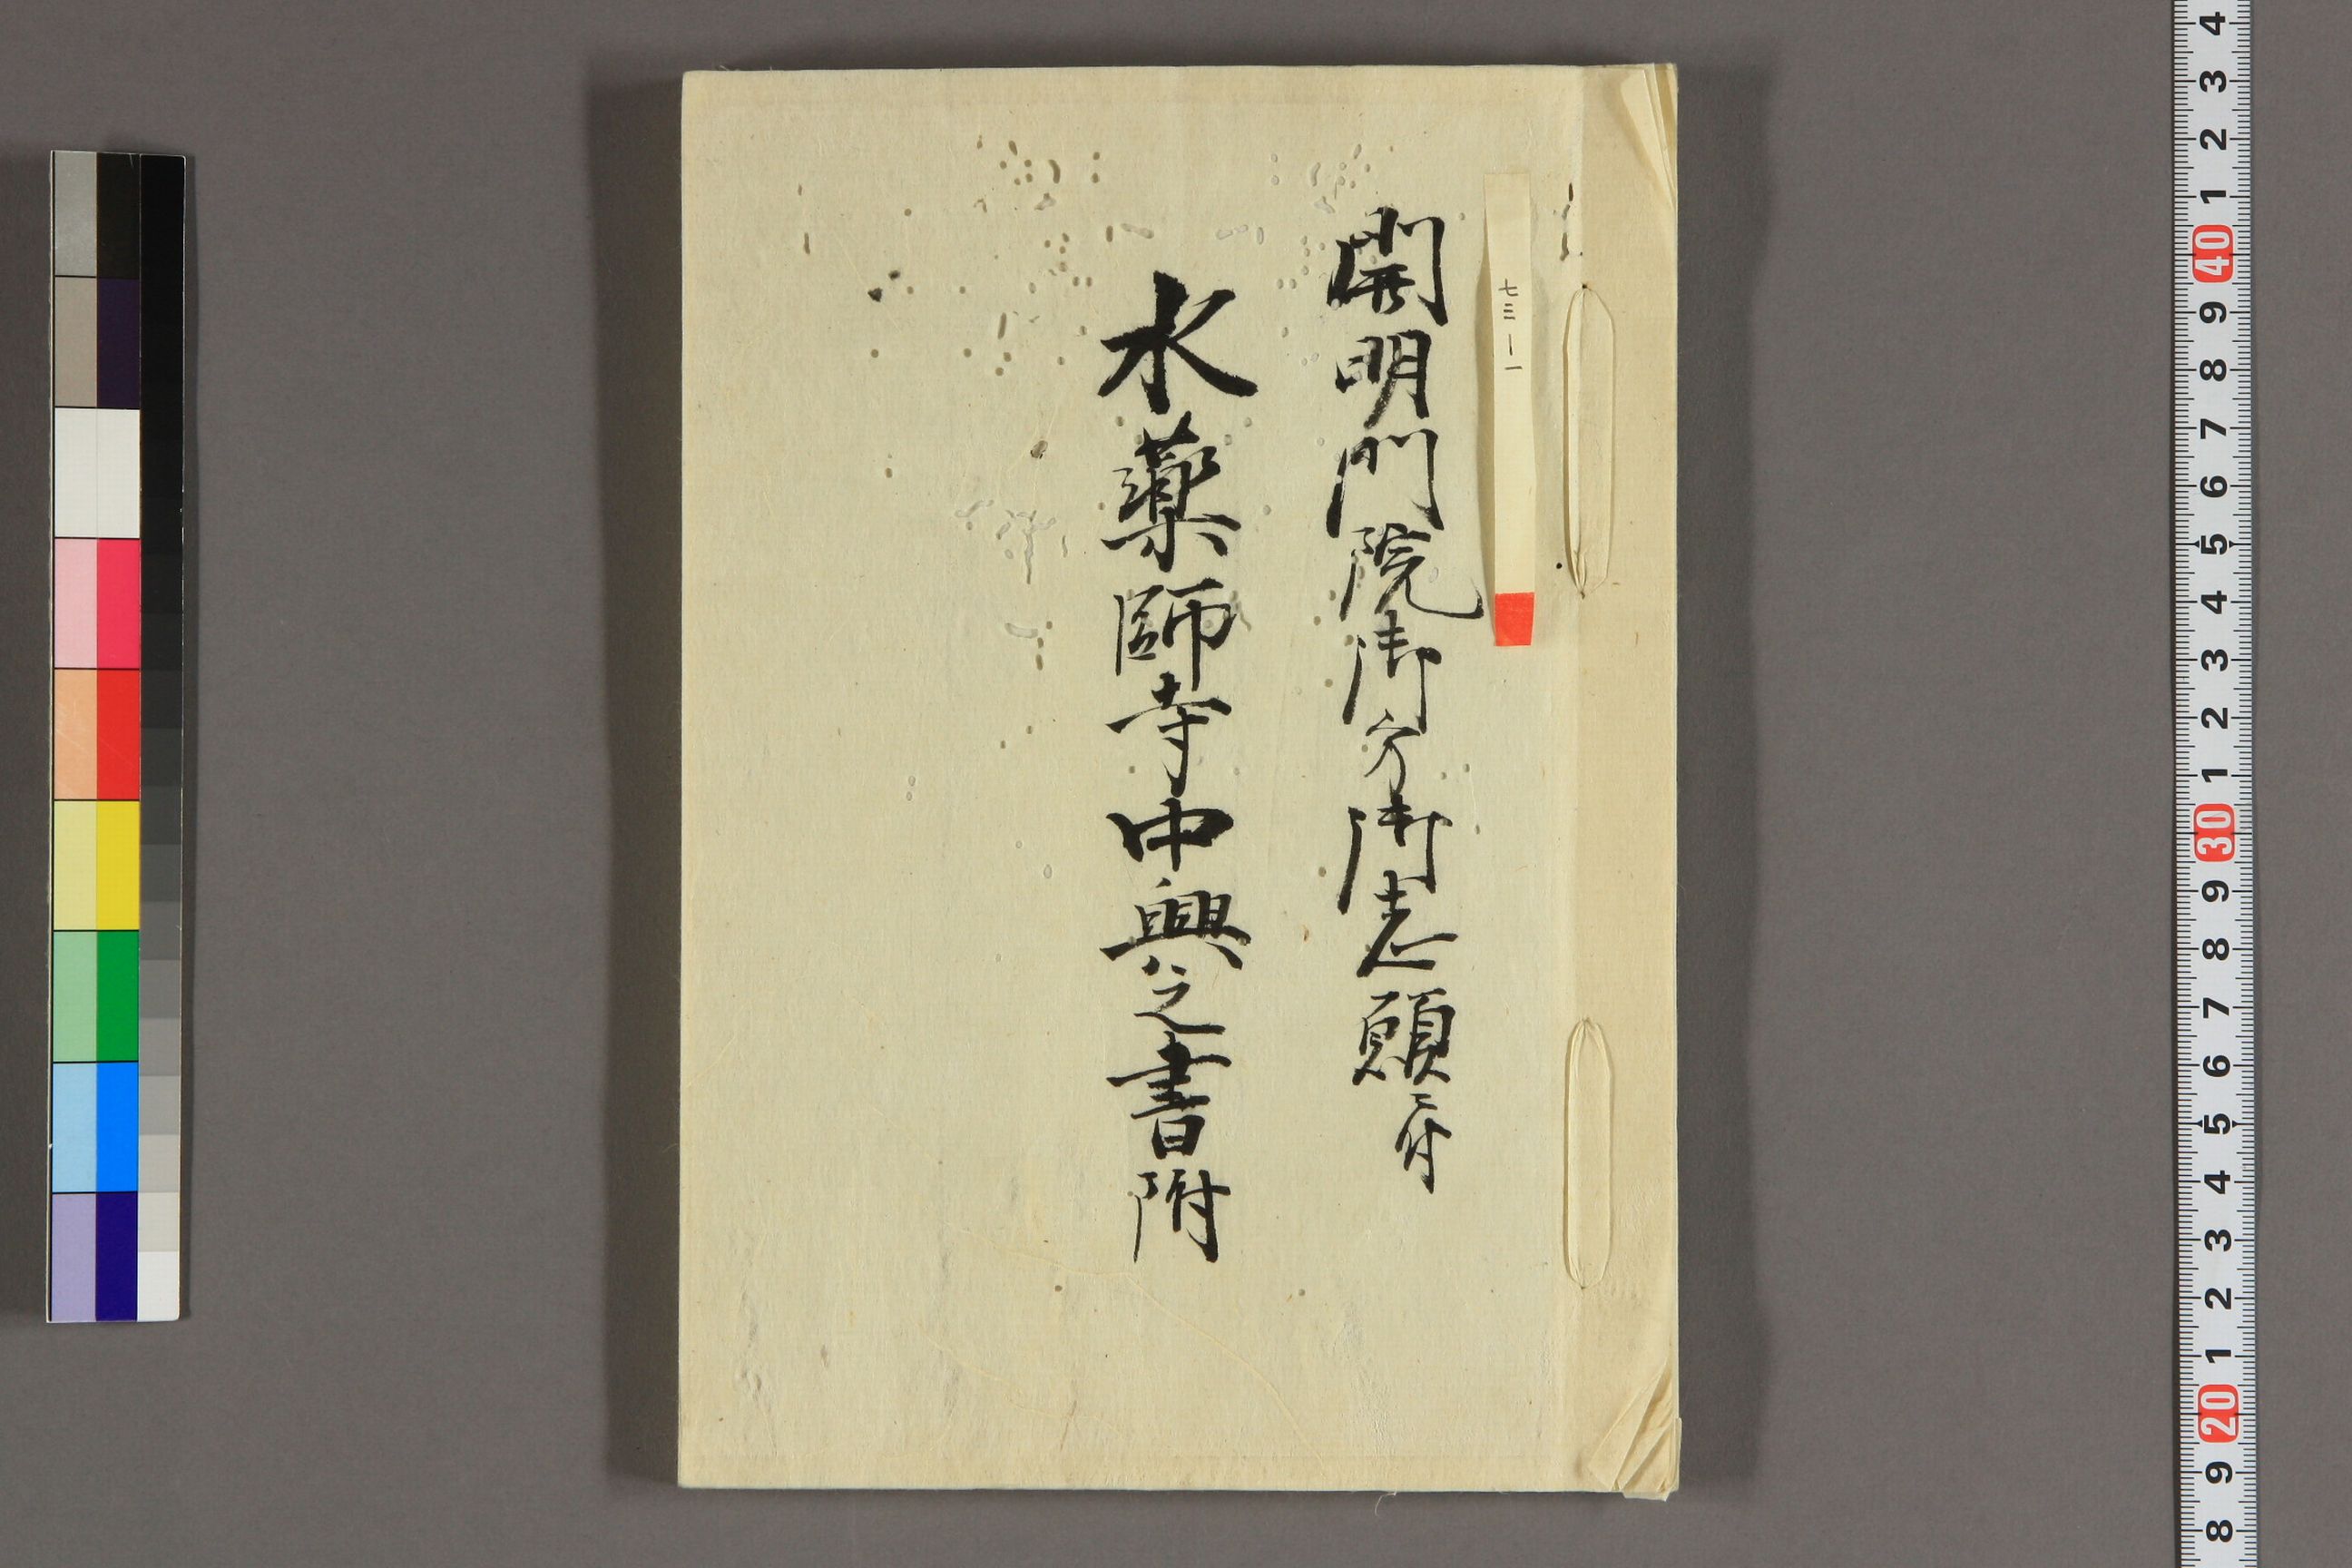 七三-一
開明門院御方御志願ニ付
水薬師寺中興之書附
4
3
2
1
40
9
8
7
6
5
4
3
2
1
30
9
8
7
6
5
4
3
2
1
20
9
8